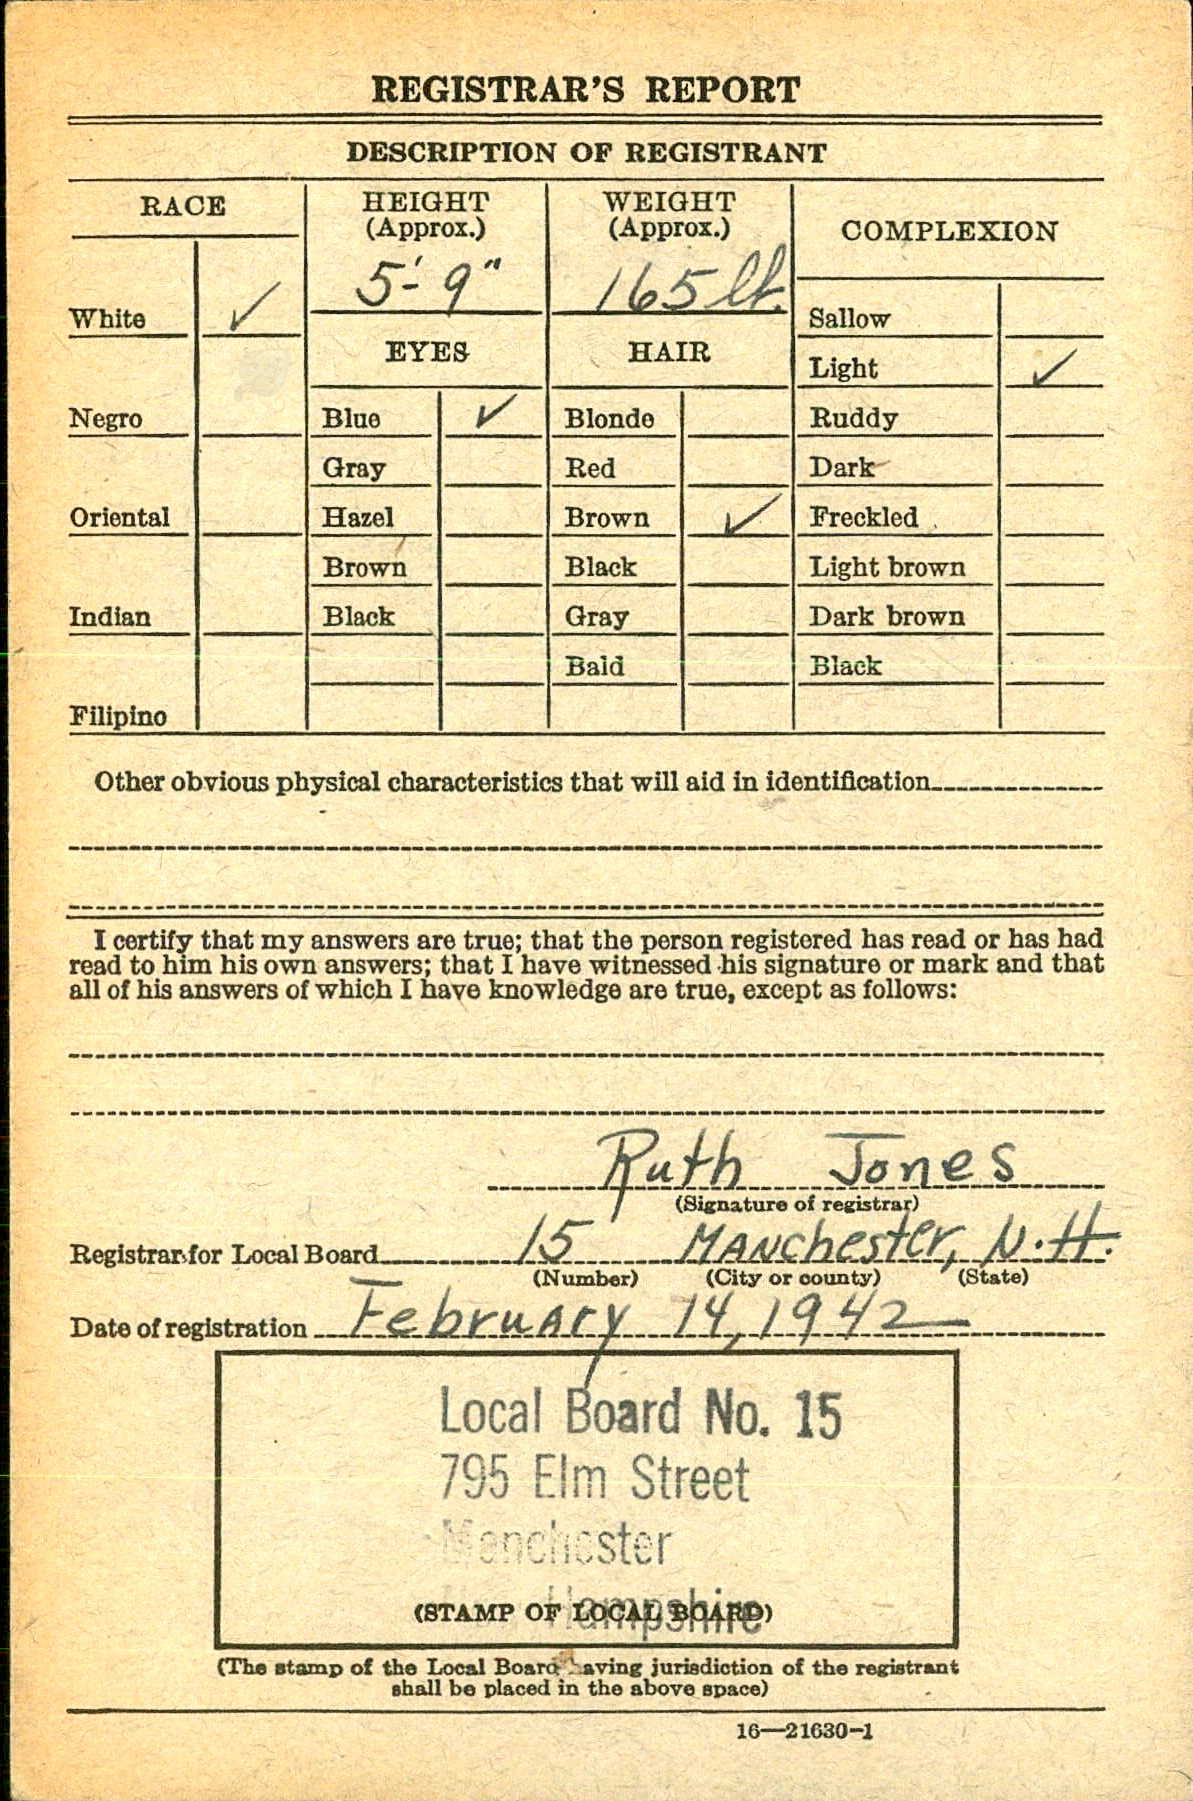 REGISTRAR'S REPORT
DESCRIPTION OF REGISTRANT
RACE
White ✓
Negro
Oriental
Indian
Filipino
HEIGHT
(Approx.)
5'-9"
EYES
Blue ✓
Gray
Hazel
Brown
Black
WEIGHT
(Approx.)
165 lb.
HAIR
Blonde
Red
Brown ✓
Black
Gray
Bald
COMPLEXION
Sallow
Light ✓
Ruddy
Dark
Freckled
Light brown
Dark brown
Black
Other obvious physical characteristics that will aid in identification
I certify that my answers are true; that the person registered has read or has had
read to him his own answers; that I have witnessed his signature or mark and that
all of his answers of which I have knowledge are true, except as follows:
Ruth Jones
(Signature of registrar)
Registrar for Local Board 15 Manchester, N.H.
(Number) (City or county) (State)
Date of registration February 14, 1942
Local Board No. 15
795 Elm Street
Manchester
Hampshire
(STAMP OF LOCAL BOARD)
(The stamp of the Local Board having jurisdiction of the registrant
shall be placed in the above space)
16—21630-1